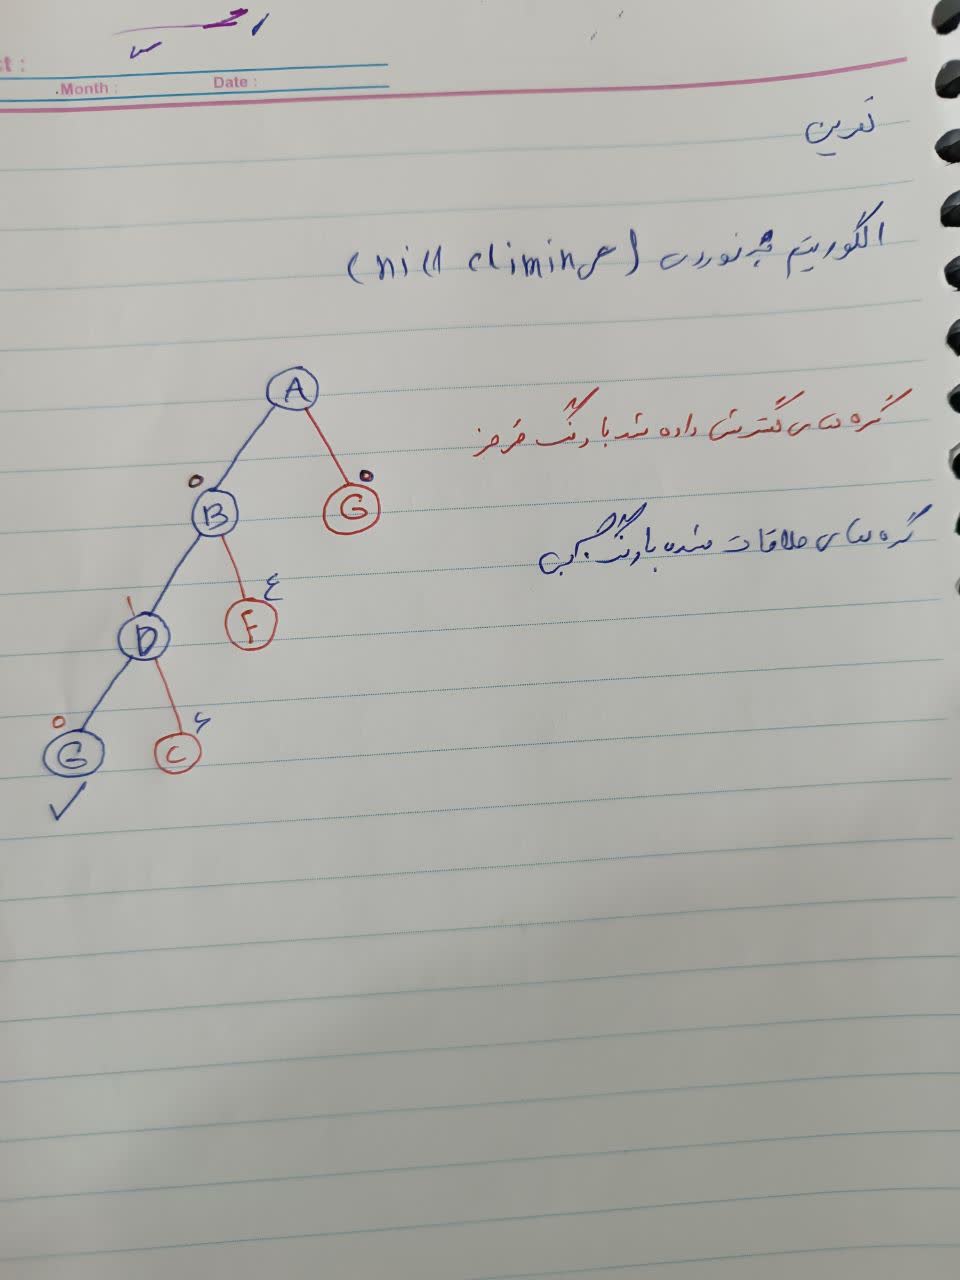 Month :
Date :
تمرین
الگوریتم تپه نوردی (hill climing)
گره های گسترش داده شد با رنگ قرمز
گره های ملاقات شده با رنگ آبی
A
B
G
۴
D
F
۶
G
C
✓